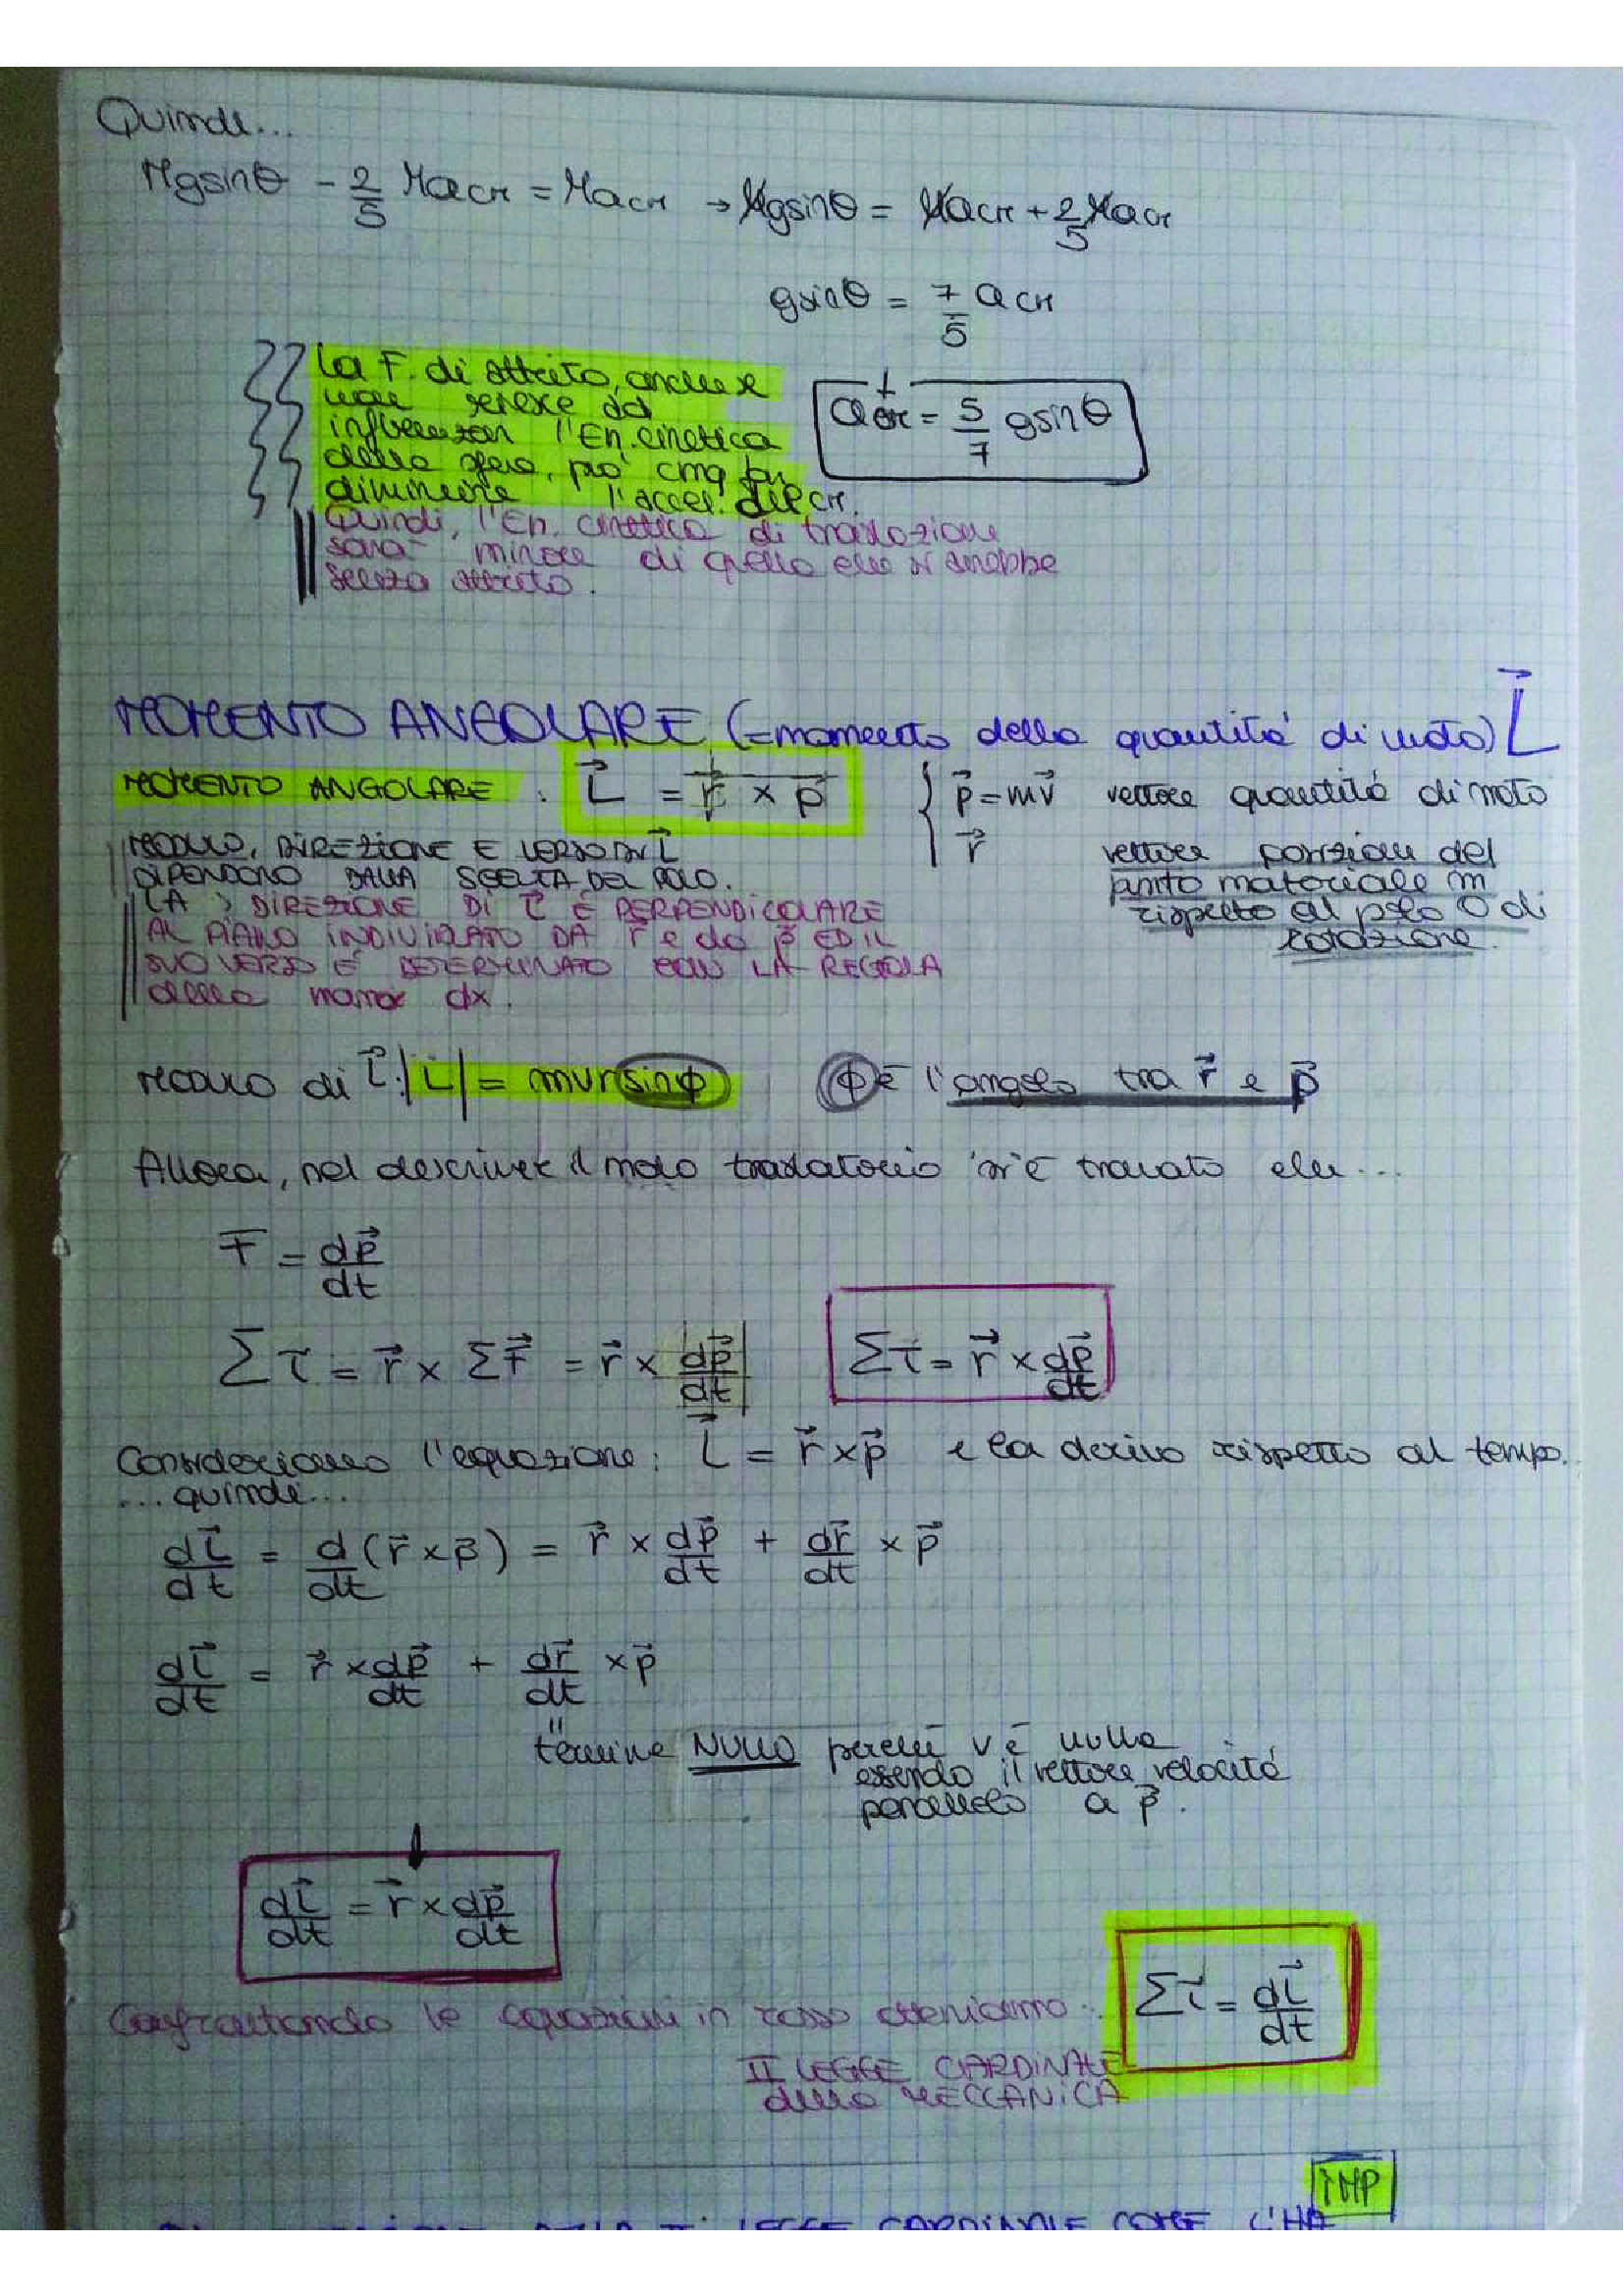 Quindi...
Mgsinθ - 2/5 MaCM = MaCM → Mgsinθ = MaCM + 2/5 MaCM
gsinθ = 7/5 aCM
La F. di attrito, anche se
non riesce ad
influenzar l'En. cinetica
della sfera, può cmq far
diminuire l'accel. del CM.
aCM = 5/7 gsinθ
Quindi, l'En. cinetica di traslazione
sarà minore di quella che si avrebbe
senza attrito.
MOMENTO ANGOLARE (=momento della quantità di moto) L⃗
MOMENTO ANGOLARE : L⃗ = r⃗ × p⃗
p⃗ = mv⃗ vettore quantità di moto
r⃗ vettore posizione del
punto materiale m
rispetto al polo O di
rotazione.
MODULO, DIREZIONE E VERSO DI L⃗
DIPENDONO DALLA SCELTA DEL POLO.
LA > DIREZIONE DI L⃗ È PERPENDICOLARE
AL PIANO INDIVIDUATO DA r⃗ e da p⃗ ED IL
SUO VERSO È DETERMINATO CON LA REGOLA
della mano dx.
MODULO di L⃗: |L⃗| = mvrsinϕ ϕ è l'angolo tra r⃗ e p⃗
Allora, nel descrivere il moto traslatorio si è trovato che...
F = dp⃗/dt
Στ = r⃗ × ΣF⃗ = r⃗ × dp⃗/dt Στ⃗ = r⃗ × dp⃗/dt
Consideriamo l'equazione: L⃗ = r⃗ × p⃗ e la derivo rispetto al tempo.
...quindi...
dL⃗/dt = d/dt (r⃗ × p⃗) = r⃗ × dp⃗/dt + dr⃗/dt × p⃗
dL⃗/dt = r⃗ × dp⃗/dt + dr⃗/dt × p⃗
"
termine NULLO perché v è nulla
essendo il vettore velocità
parallelo a p⃗.
dL⃗/dt = r⃗ × dp⃗/dt
Confrontando le equazioni in rosso otteniamo: Στ⃗ = dL⃗/dt
II LEGGE CARDINALE
della MECCANICA
IMP
LEGGE CARDINALE COME L'HA